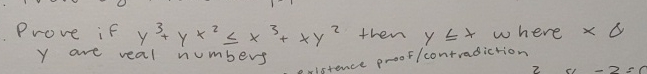 . Prove if y³ + yx² ≤ x³ + xy² then y ≤ x where x &
y are real numbers
existence proof/contradiction